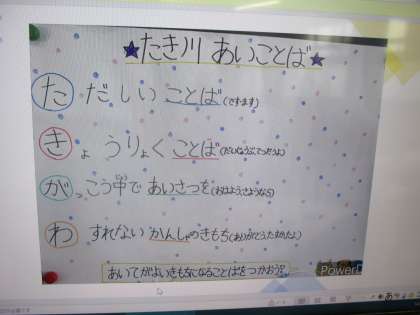 ★たき川 あいことば★
ただしいことば(ですます)
きょうりょくことば(だいじょうぶ、てつだうよ)
がっこう中であいさつを(おはようさようなら)
わすれないかんしゃのきもち(ありがとうたすかったよ)
あいてがよいきもちになることばをつかおう!
PowerD